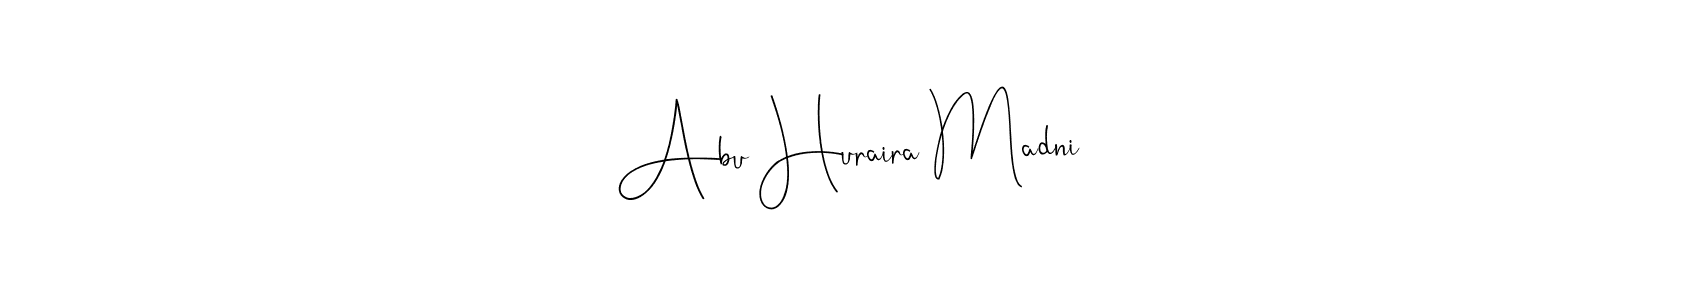 Abu Huraira Madni